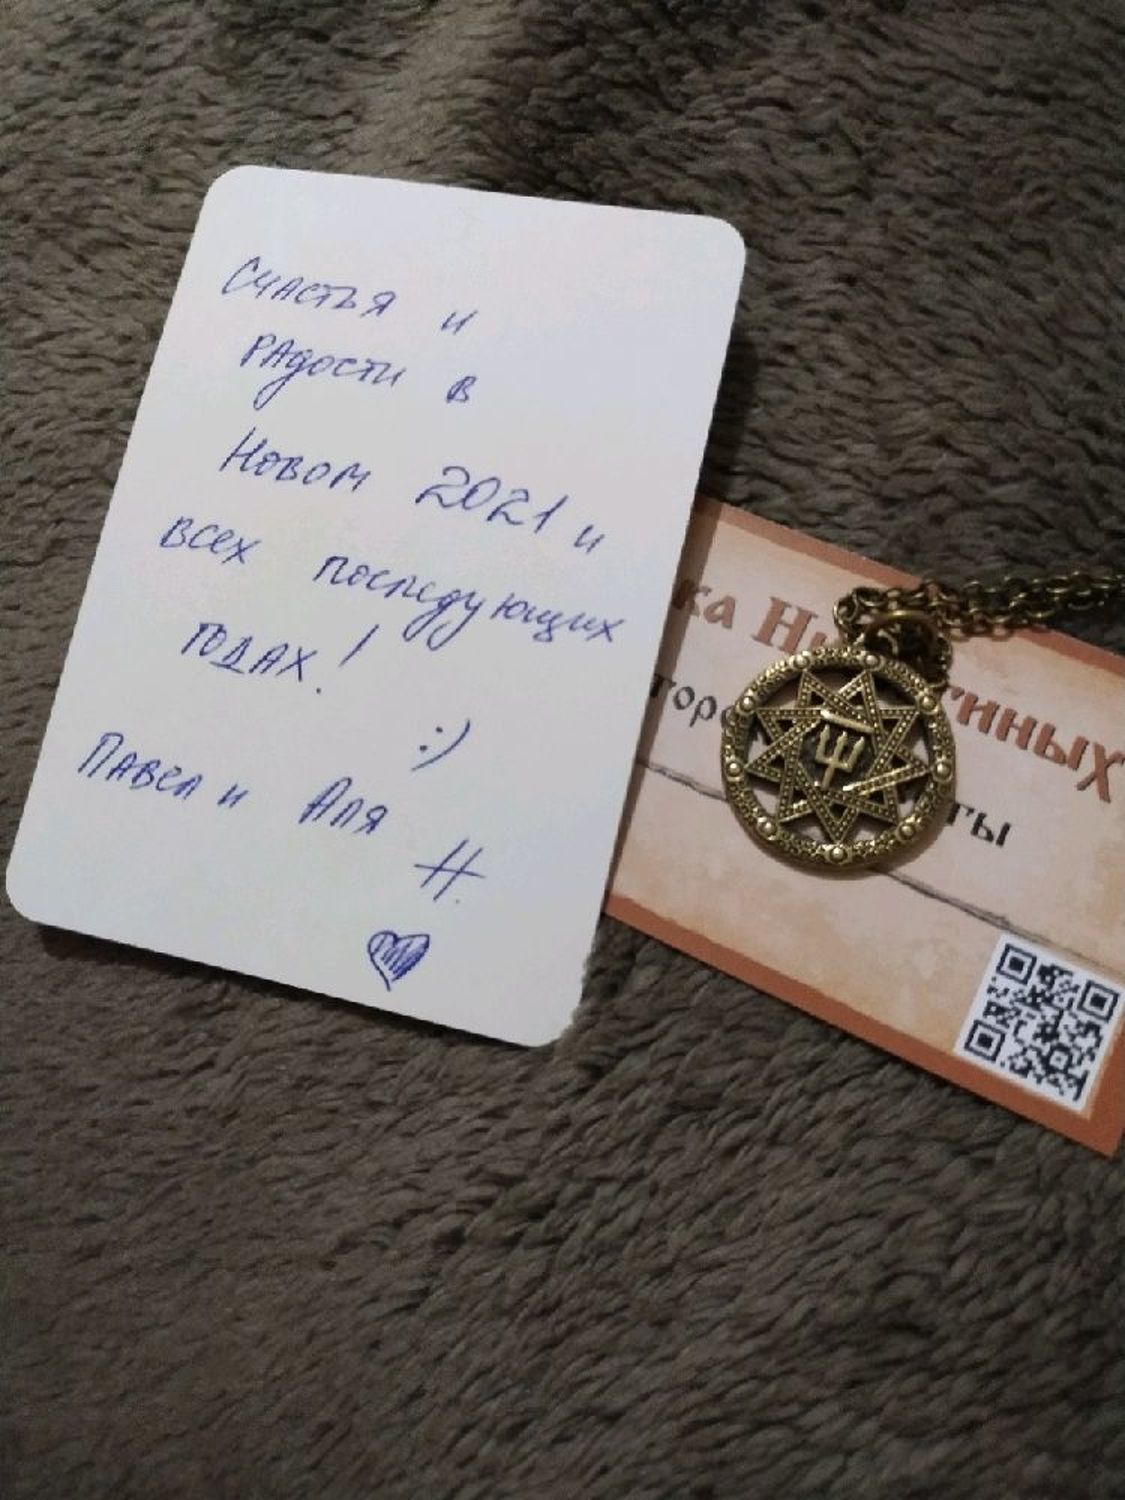 Счастья и
радости в
Новом 2021 и
всех последующих
годах!
:)
Павел и Аля
Н.
ка Ни гиных
тор ты